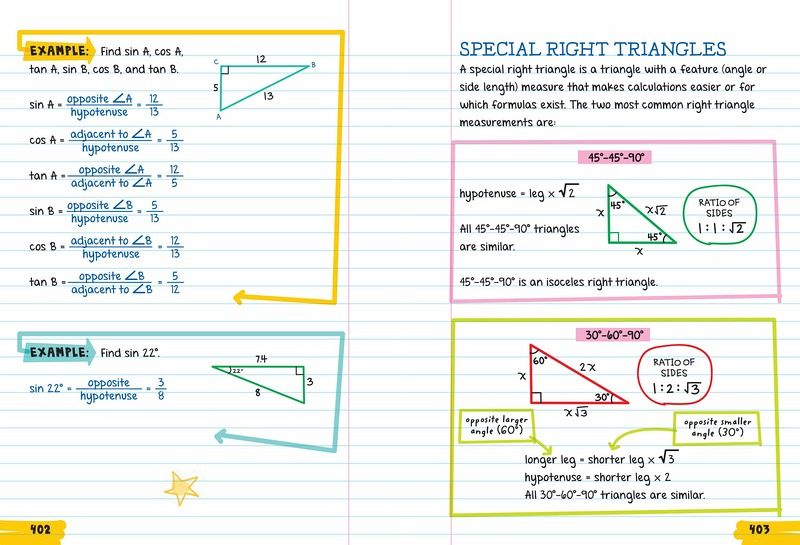 EXAMPLE: Find sin A, cos A,
tan A, sin B, cos B, and tan B.
C 12 B
5 13
A
sin A = opposite ∠A / hypotenuse = 12/13
cos A = adjacent to ∠A / hypotenuse = 5/13
tan A = opposite ∠A / adjacent to ∠A = 12/5
sin B = opposite ∠B / hypotenuse = 5/13
cos B = adjacent to ∠B / hypotenuse = 12/13
tan B = opposite ∠B / adjacent to ∠B = 5/12
EXAMPLE: Find sin 22°.
7.4
22° 3
8
sin 22° = opposite / hypotenuse = 3/8
402
SPECIAL RIGHT TRIANGLES
A special right triangle is a triangle with a feature (angle or
side length) measure that makes calculations easier or for
which formulas exist. The two most common right triangle
measurements are:
45°-45°-90°
hypotenuse = leg × √2
All 45°-45°-90° triangles
are similar.
45°
x x√2
45°
x
RATIO OF
SIDES
1:1:√2
45°-45°-90° is an isoceles right triangle.
30°-60°-90°
60° 2x
x
30°
x√3
RATIO OF
SIDES
1:2:√3
opposite larger
angle (60°)
opposite smaller
angle (30°)
longer leg = shorter leg × √3
hypotenuse = shorter leg × 2
All 30°-60°-90° triangles are similar.
403